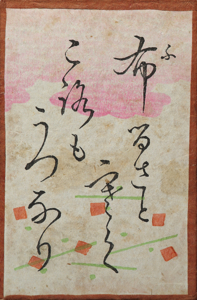 布るさと
ふ
さむく
こ路も
うつなり